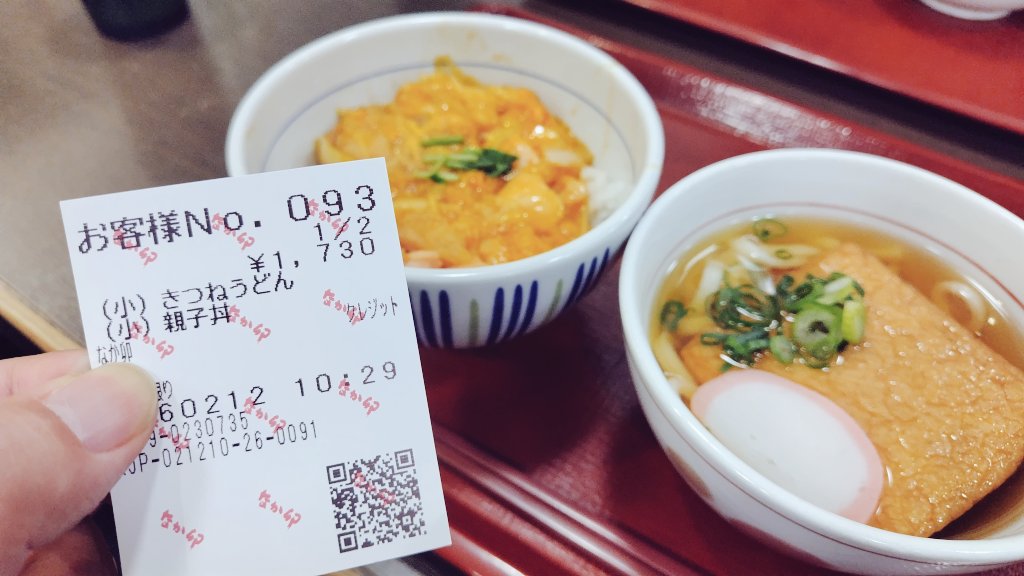 お客様No. 093
1/2
¥1,730
(小) きつねうどん
(小) 親子丼
クレジット
なか卯
限り
60212 10:29
9-0230735
0P-021210-26-0091
なか卯
なか卯
なか卯
なか卯
なか卯
なか卯
なか卯
なか卯
なか卯
なか卯